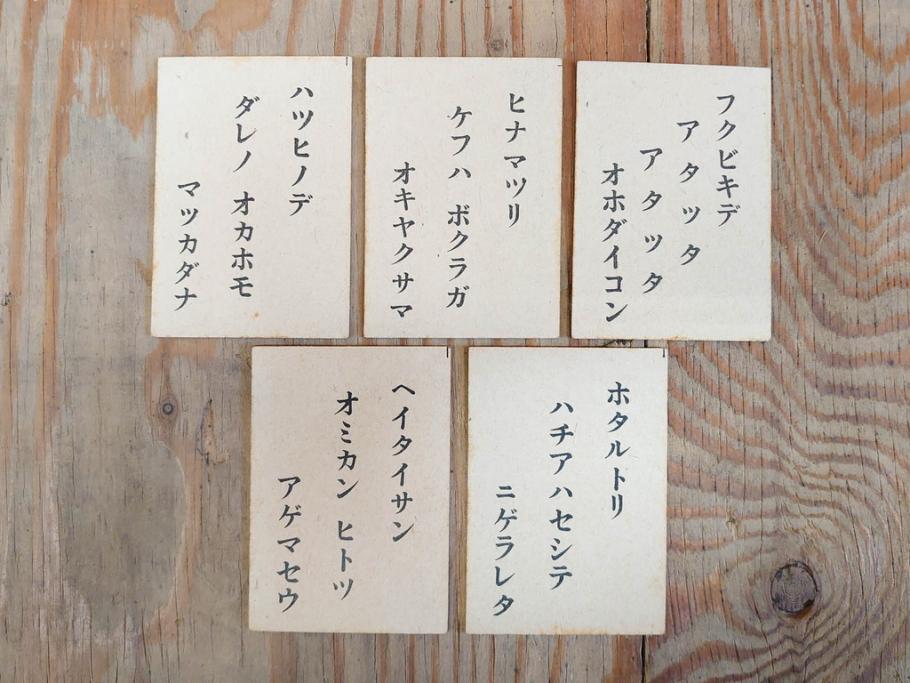 フクビキデ
アタッタ
アタッタ
オホダイコン
ヒナマツリ
ケフハ ボクラガ
オキヤクサマ
ハツヒノデ
ダレノ オカホモ
マツカダナ
ホタルトリ
ハチアハセシテ
ニゲラレタ
ヘイタイサン
オミカン ヒトツ
アゲマセウ